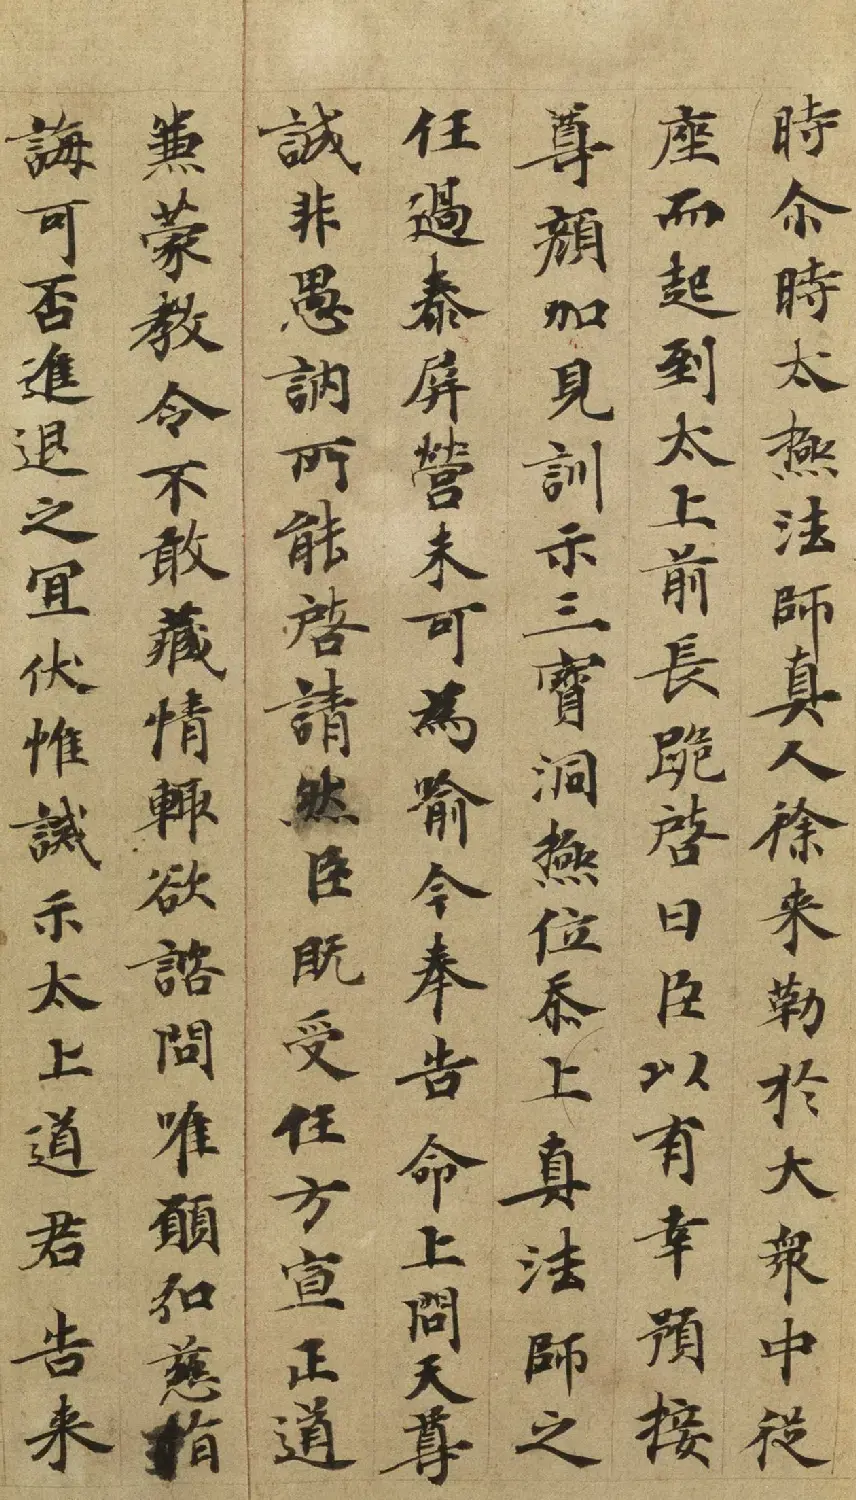 時尒時太極法師真人徐来勒於大衆中従
座而起到太上前長跪啓曰臣以有幸預接
尊顔加見訓示三寶洞極位忝上真法師之
任過泰屏營未可為喻今奉告命上問天尊
誠非愚訥所能啓請然臣既受任方宣正道
兼蒙教令不敢藏情輙欲諮問唯願弘慈指
誨可否進退之冝伏惟誡示太上道君告来